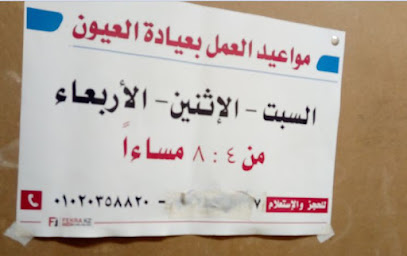 مواعيد العمل بعيادة العيون
السبت - الإثنين - الأربعاء
من ٤ : ٨ مساءاً
للحجز والإستعلام
٧ - ٠١٠٢٠٣٥٨٨٢٠